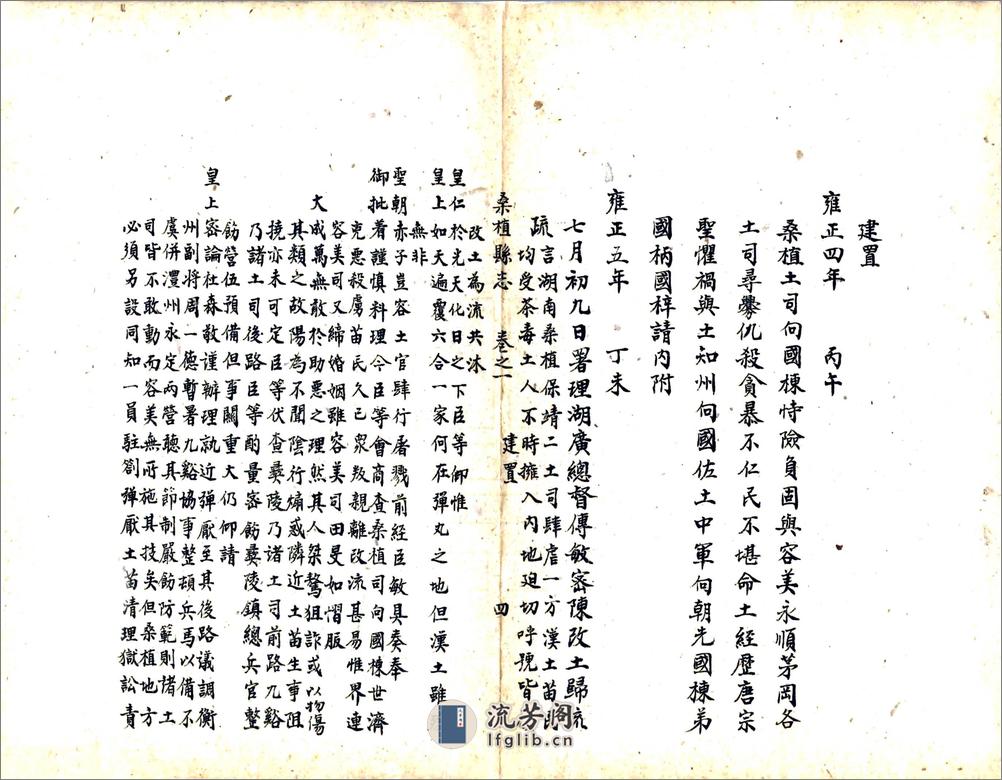 建置
雍正四年 丙午
桑植土司向國棟恃險負固與容美永順茅岡各
土司尋釁仇殺貪暴不仁民不堪命土經歷唐宗
聖懼禍與土知州向國佐土中軍向朝先國棟弟
國柄國梓請內附
雍正五年 丁未
七月初九日署理湖廣總督傅敏密陳改土歸流
疏言湖南桑植保靖二土司肆虐一方漢土苗民
均受荼毒土人不時擁入內地迫切呼號皆
桑植縣志 卷之一 建置 四
改土為流共沐
皇仁於光天化日之下臣等仰惟
皇上如天遍覆六合一家何在彈丸之地但漢土雖
無非
聖朝赤子豈容土官肆行屠戮前經臣敏具奏奉
御批着謹慎料理今臣等會商查桑植司向國棟世濟
克惡殺虜苗民久已眾叛親離改流甚易惟界連
容美司又締婚姻雖容美司田旻如懾服
大成萬無敢於助惡之理然其人桀驁狙詐或以物傷
其類之故陽為不聞陰行煽惑隣近土苗生事阻
撓亦未可定臣等伏查彝陵乃諸土司前路九谿
乃諸土司後路臣等酌量密飭彝陵鎮總兵官整
飭營伍預備但事關重大仍仰請
皇上密諭杜森敬謹辦理就近彈壓至其後路議調衡
州副將周一德暫署九谿協事整頓兵馬以備不
虞併澧州永定兩營聽其節制嚴飭防範則諸土
司皆不敢動而容美無所施其技矣但桑植地方
必須另設同知一員駐劄彈壓土苗清理獄訟責
流芳閣
lfglib.cn